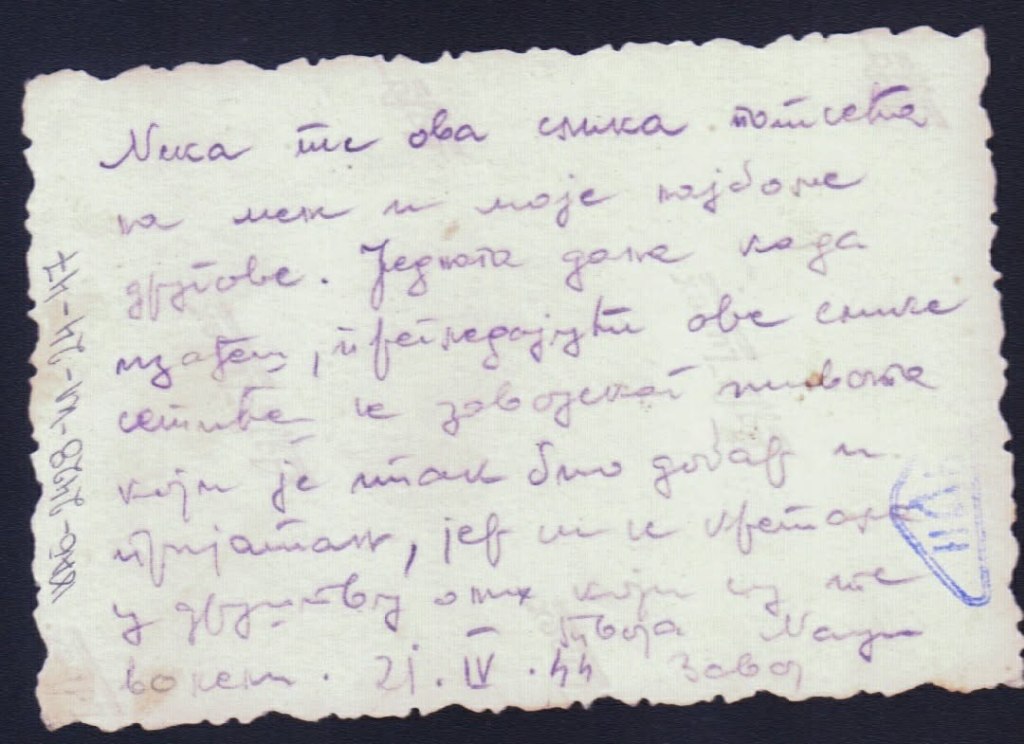 Нека те ова слика потсећа
на мене и моје најбоље
другове. Једнога дана када
изађеш, прегледајући ове слике
сетиће се заводског живота
који је ипак био добар и
пријатан, јер си се кретала
у друштву оних који су те
волели. 21. IV. 44 Завод
Твоја